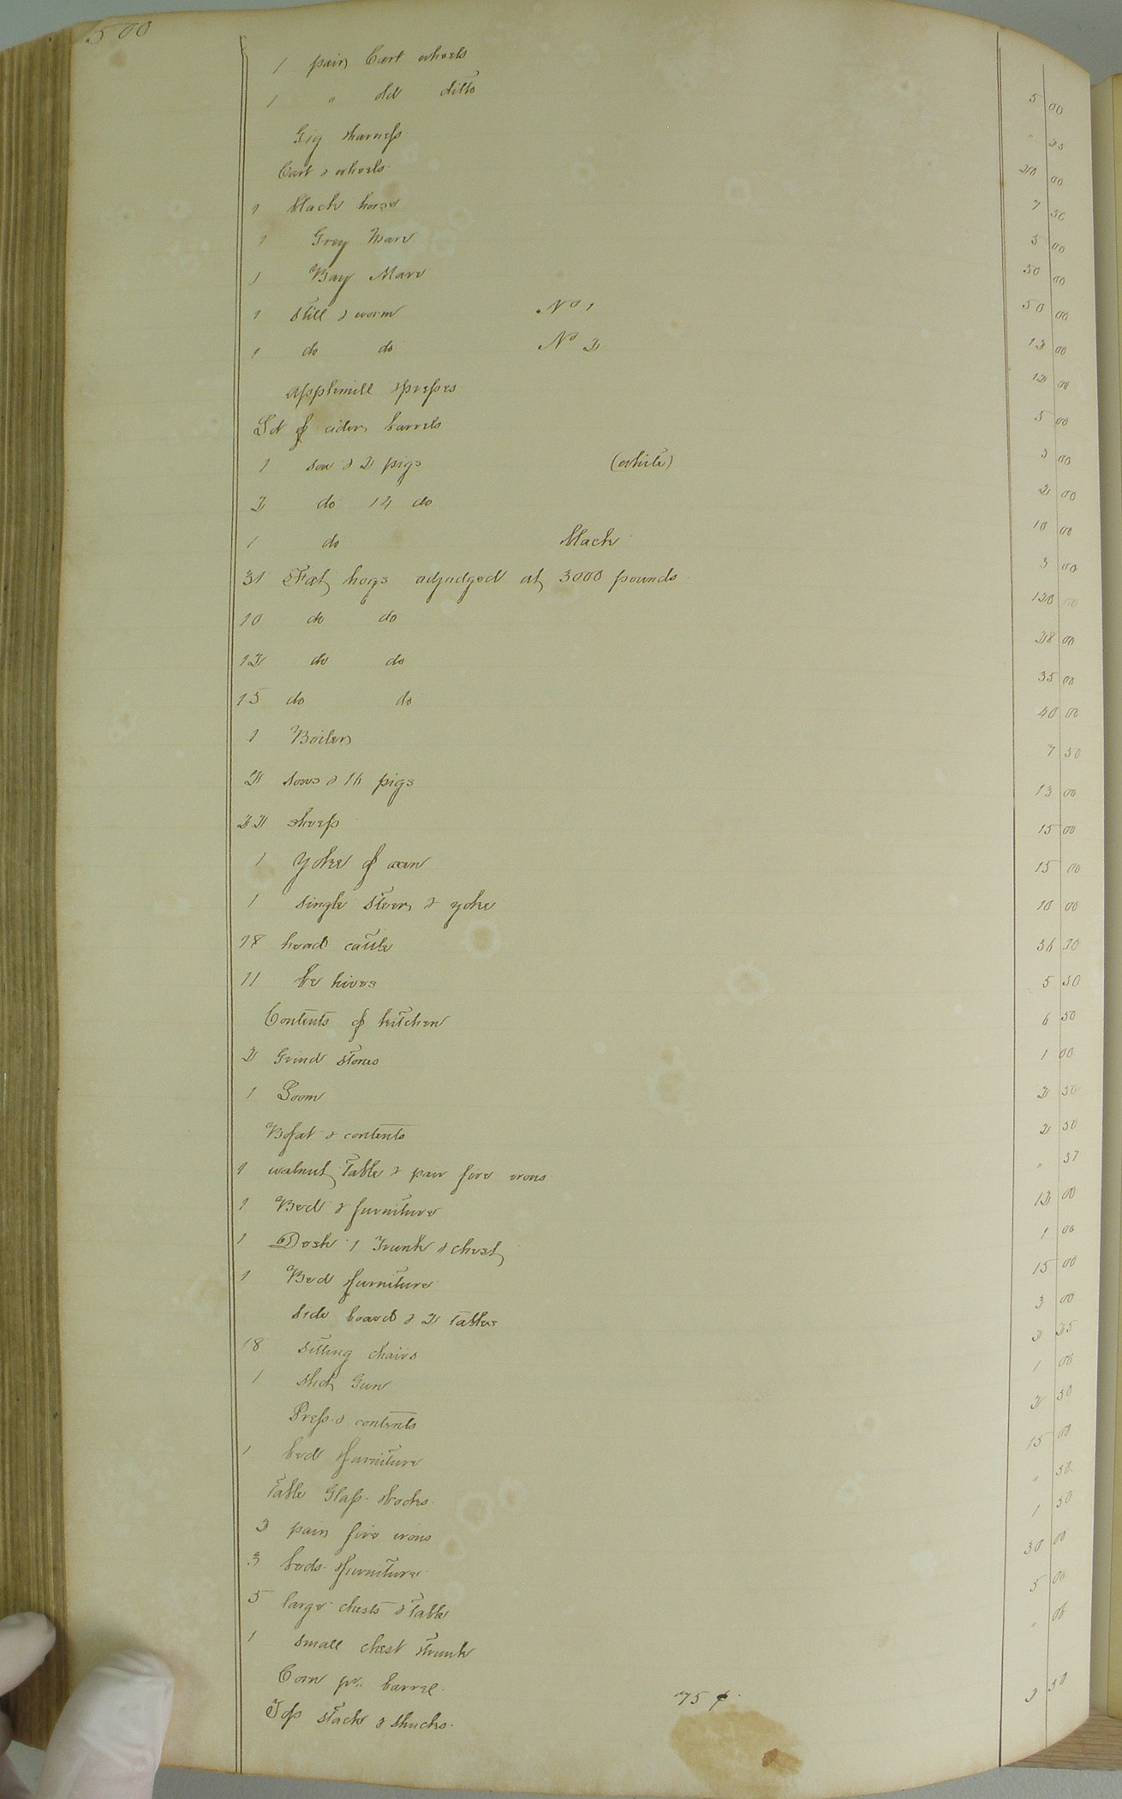 500
1 pair Cart wheels 5 00
1 " old ditto " 25
Gig & harness 20 00
Cart & wheels 7 50
1 black horse 5 00
1 Grey Mare 50 00
1 Bay Mare 50 00
1 Still & worm No 1 12 00
1 do do No 2 12 00
Applemill & presses 5 00
Lot of cider barrels 3 00
1 sow & 2 pigs (white) 2 00
2 do 14 do 10 00
1 do black 3 00
31 Fat hogs adjudged at 3000 pounds 120 00
10 do do 28 00
12 do do 35 00
15 do do 40 00
1 Boiler 7 50
2 sows & 16 pigs 13 00
22 sheep 15 00
1 Yoke of oxen 15 00
1 single steer & yoke 10 00
18 head cattle 36 50
11 be hives 5 50
Contents of kitchen 6 50
2 Grind stones 1 00
1 Loom 2 50
Bofat & contents 2 50
1 walnut Table & pair fire irons " 37
1 Bed & furniture 12 00
1 Desk 1 Trunk & chest 1 00
1 Bed & furniture 15 00
Side board & 2 tables 3 00
18 sitting chairs 2 25
1 shot Gun 1 00
Press & contents 2 50
1 bed & furniture 15 00
Table Glass & books " 50
2 pair fire irons 1 50
3 beds & furniture 30 00
5 large chests & Table 5 00
1 small chest & trunk "
Corn pr. barrel 75 ¢
Top stack & shucks 2 50